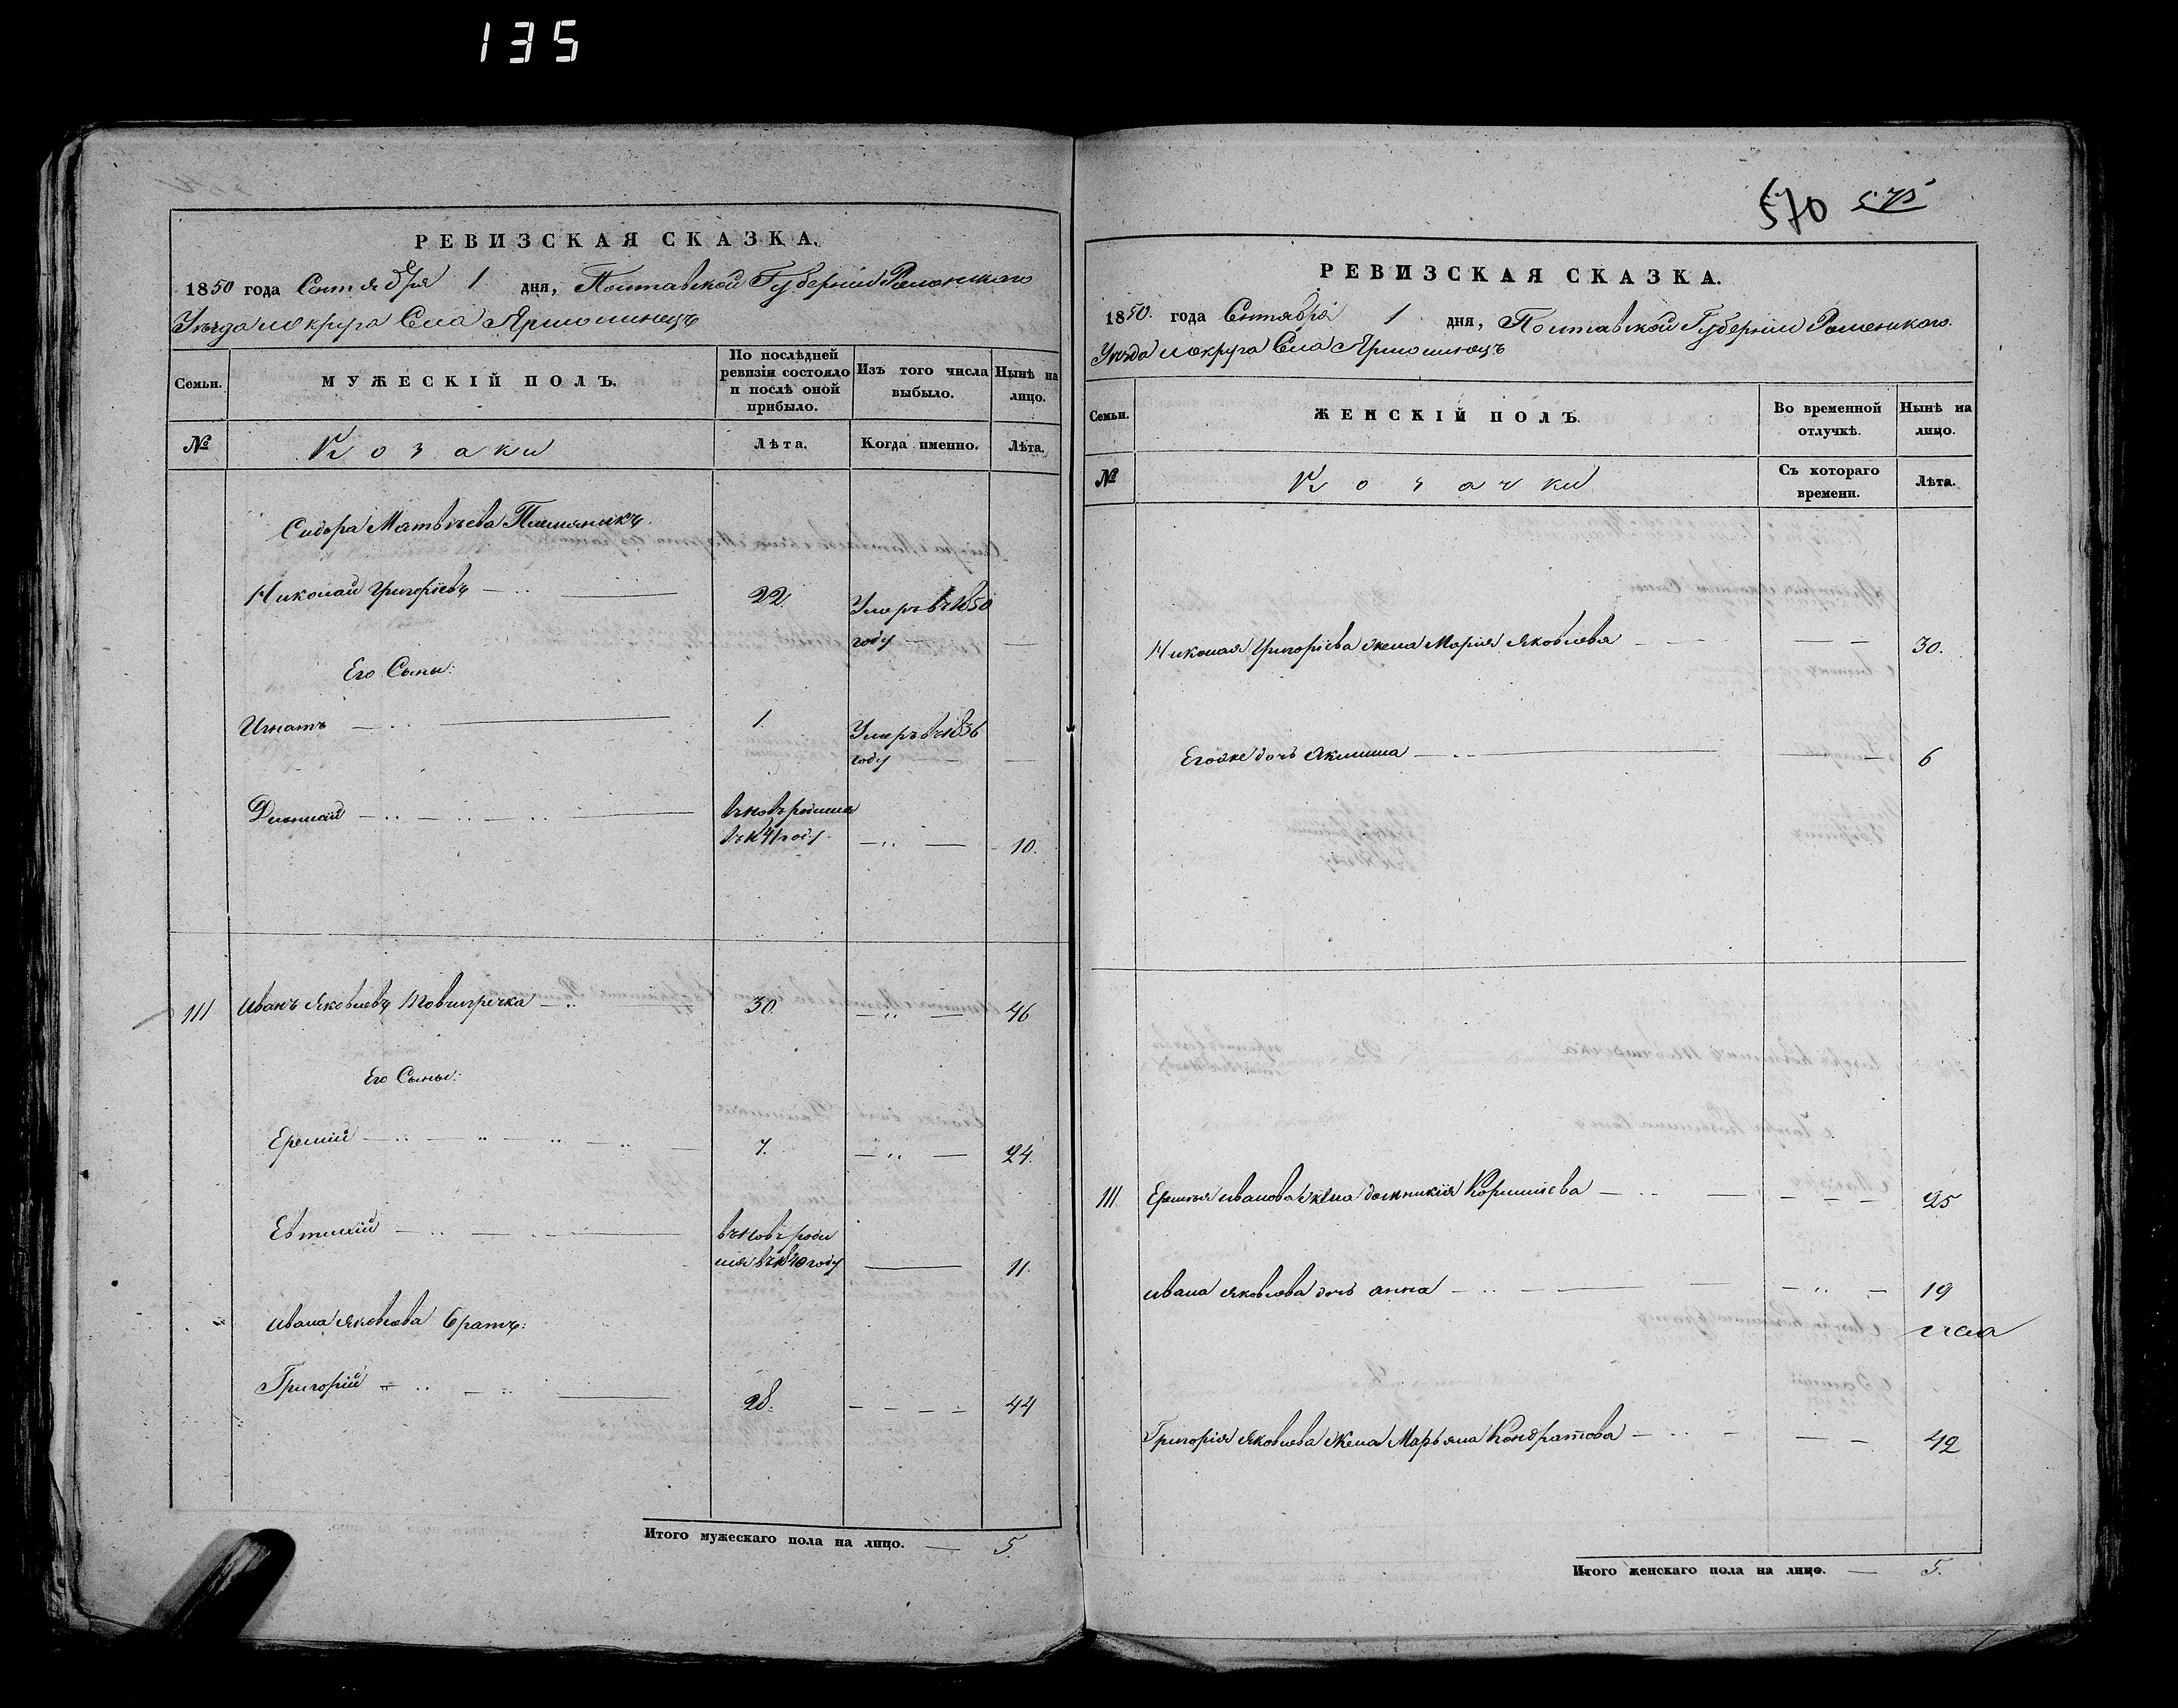 135
РЕВИЗСКАЯ СКАЗКА.
1850 года Сентября 1 дня, Полтавской Губернии Роменского
Уезда и округа Села Ярмолинець
Семьи.
МУЖЕСКІЙ ПОЛЪ.
По послѣдней ревизіи состояло и послѣ оной прибыло.
Изъ того числа выбыло.
Нынѣ на лицо.
№
Козаки
Лѣта.
Когда именно.
Лѣта.
Сидора Матвѣева Племяникъ
Николай Григоріевъ 22 Умеръ въ 1850
году
Его Сыны:
Игнатъ 1. Умеръ въ 1836
году
Дионисий въновь родился
въ 1841 году 10.
111 Иванъ Яковлевъ Товчигречка 30. 46
Его Сыны:
Еремій 7. 24.
Евтихій вновь роди
лся въ 1840 году 11.
Ивана Яковлева братъ:
Григорій 28. 44
Итого мужескаго пола на лицо. 5.
570 575
РЕВИЗСКАЯ СКАЗКА.
1850. года Сентября 1 дня, Полтавской Губернии Роменского
Уезда и округа Села Ярмолинець
Семьи.
ЖЕНСКІЙ ПОЛЪ.
Во временной отлучкѣ.
Нынѣ на лицо.
№
Козачки
Съ котораго времени.
Лѣта.
Николая Григоріева жена Марія Яковлева 30.
Его же дочь Акилина 6
111 Еремія Иванова жена Корниліева 25
Ивана Яковлева дочь Анна 19
Григорія Яковлева жена Марьяна Кондратова 42
Итого женскаго пола на лицо. 5.